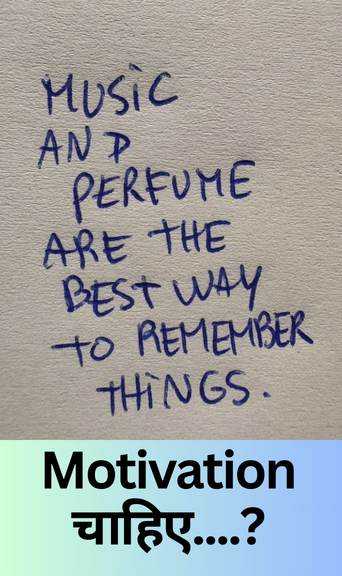 MUSiC
AND
PERFUME
ARE THE
BEST WAY
TO REMEMBER
THiNGS.
Motivation
चाहिए....?